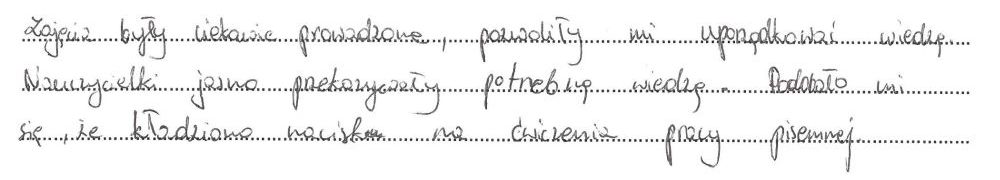 Zajęcia były ciekawie prowadzone, pozwoliły mi uporządkować wiedzę.
Nauczycielki jasno przekazywały potrzebną wiedzę. Podobało mi
się, że kładziono nacisk na ćwiczenia pracy pisemnej.